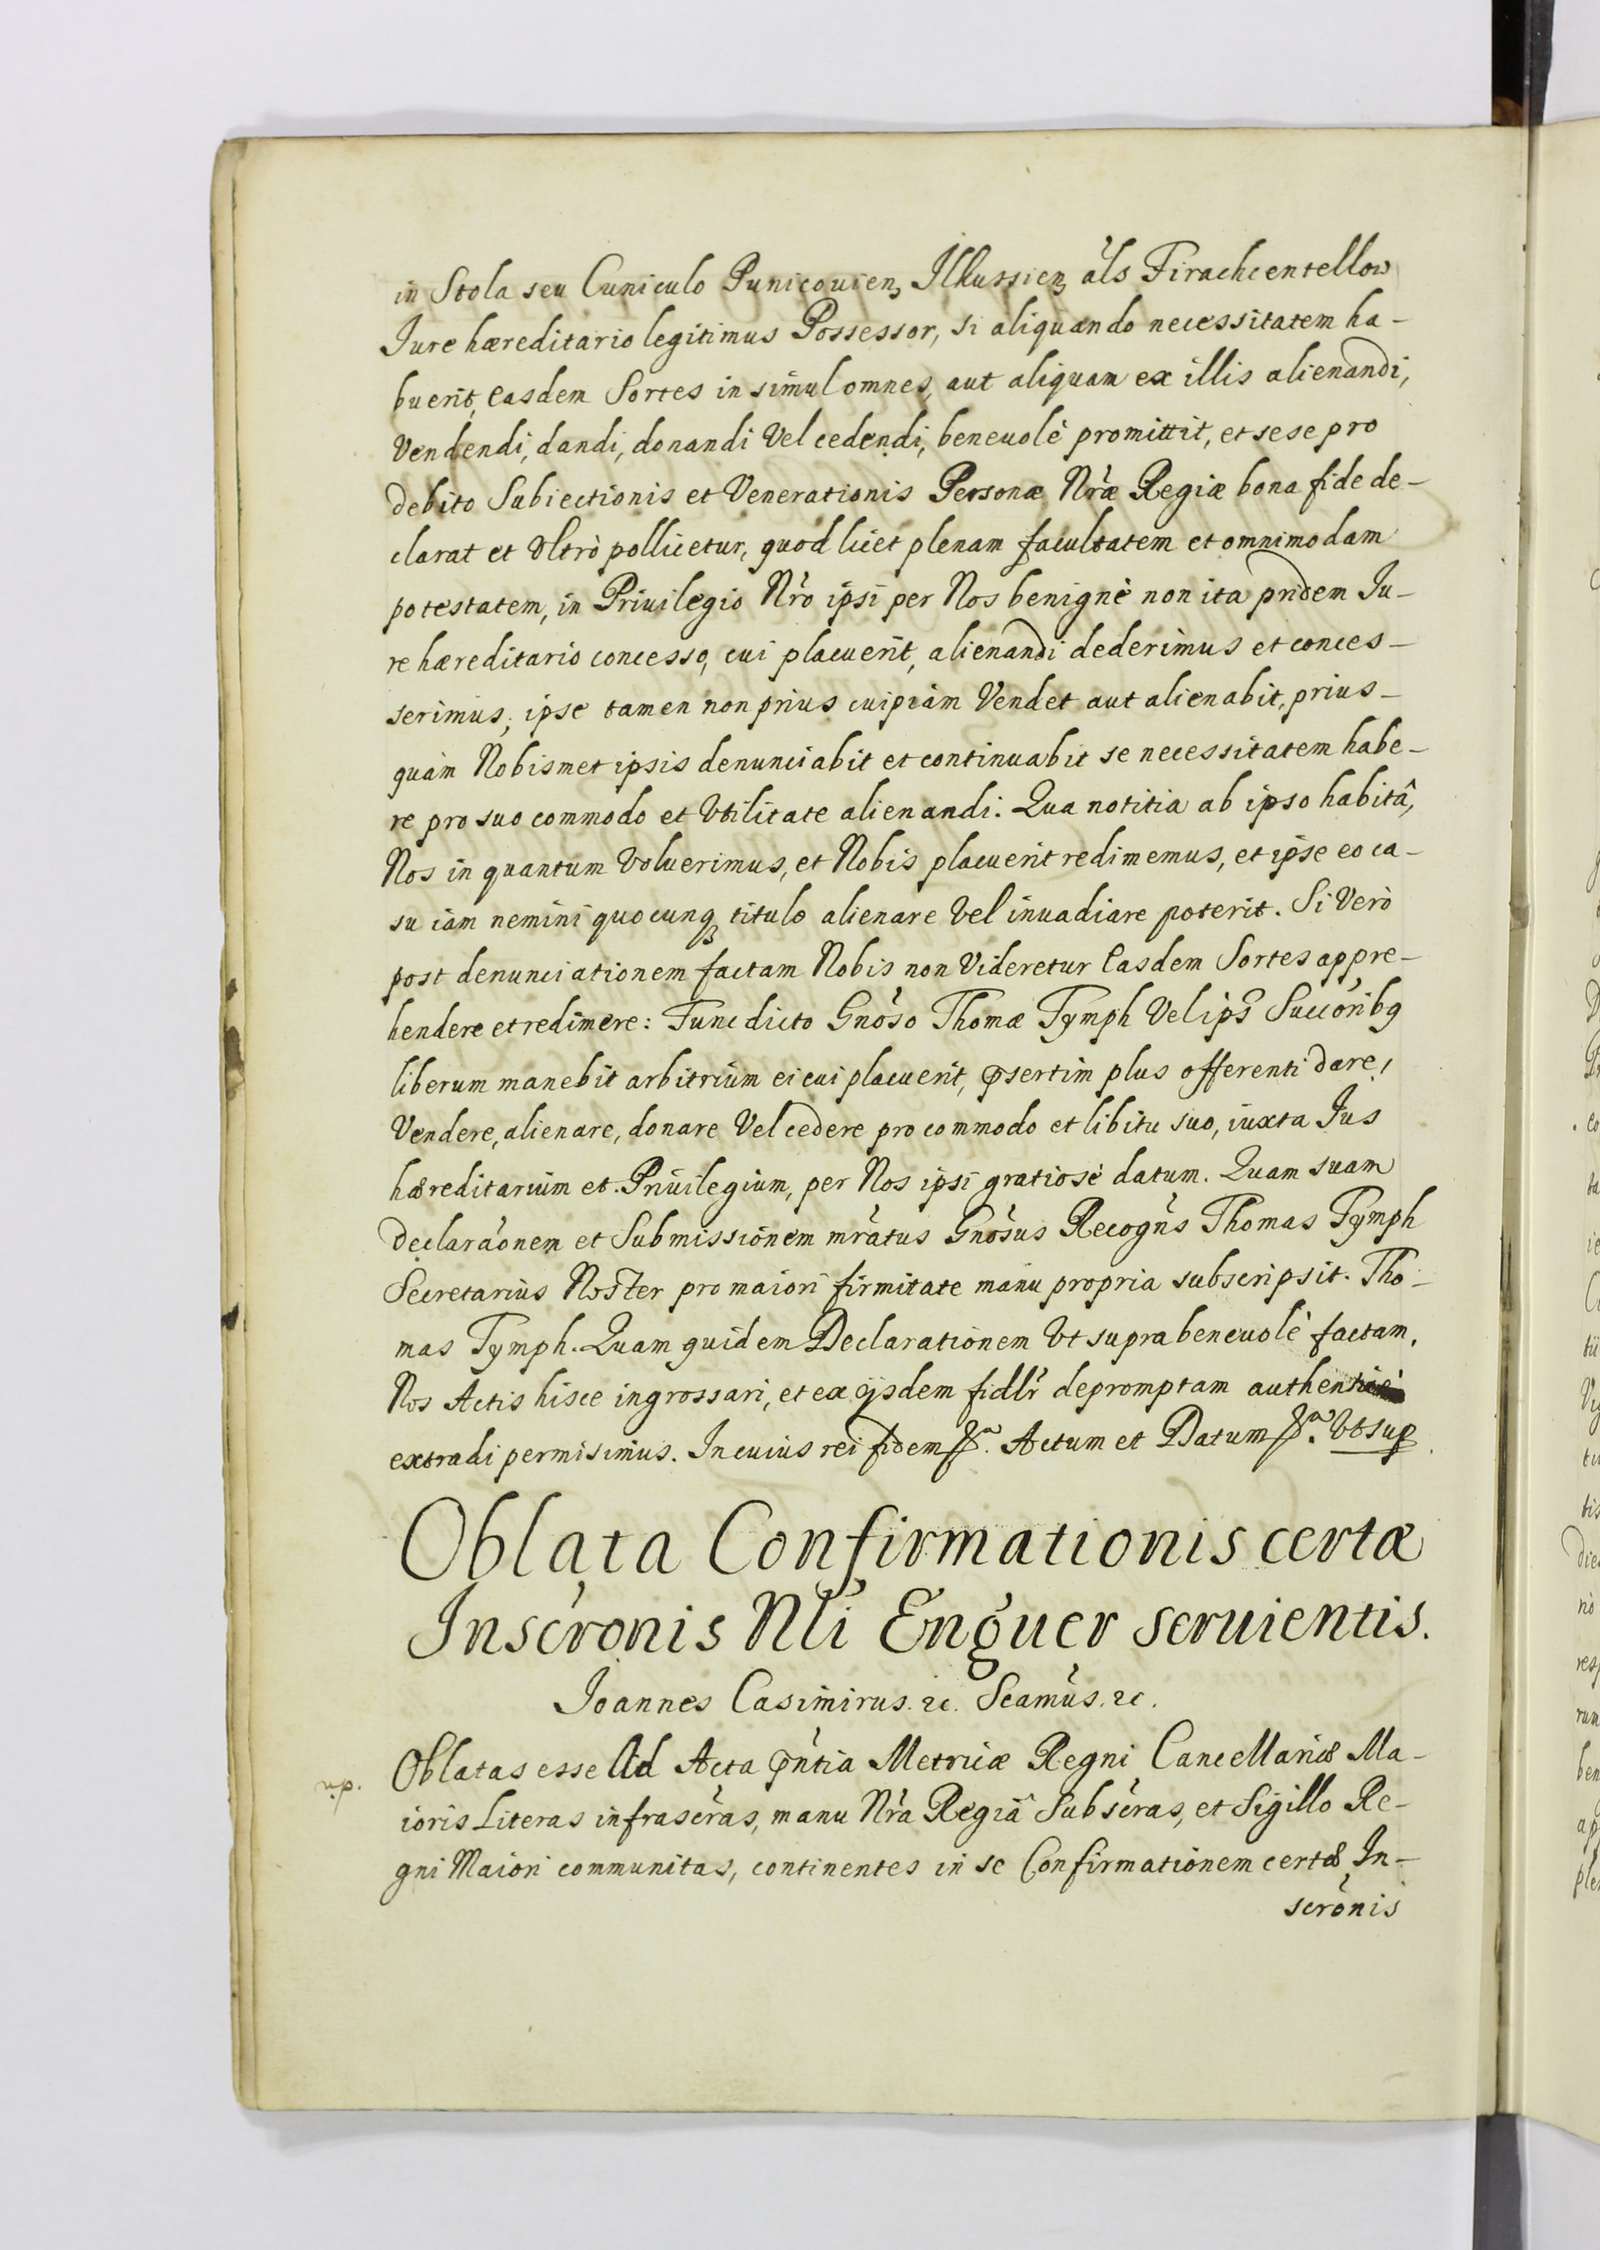 in Stola seu Cuniculo Punicouien, Ilkussien, als Firachcentellow
Jure hæreditario legitimus Possessor, si aliquando necessitatem ha-
buerit, easdem Sortes in simul omnes, aut aliquam ex illis alienandi,
Vendendi, dandi, donandi Vel cedendi, beneuolè promittit, et sese pro
debito Subiectionis et Venerationis Personæ Nræ Regiæ bona fide de-
clarat et Vltrò pollicetur, quod licet plenam facultatem et omnimodam
potestatem, in Priuilegio Nro ipsi per Nos benignè non ita pridem Ju-
re hæreditario concesso, cui placuerit, alienandi dederimus et conces-
serimus, ipse tamen non prius cuipiam Vendet aut alienabit, prius-
quàm Nobismet ipsis denunciabit et continuabit se necessitatem habe-
re pro suo commodo et Vtilitate alienandi. Qua notitia ab ipso habitâ,
Nos in quantum Voluerimus, et Nobis placuerit redimemus, et ipse eo ca-
su iam nemini quocunq titulo alienare Vel inuadiare poterit. Si Verò
post denunciationem factam Nobis non Videretur Easdem Sortes appre-
hendere et redimere: Tunc dicto Gnoso Thomæ Tymph Vel ips Succoribq
liberum manebit arbitrium ei cui placuerit, psertim plus offerenti dare,
Vendere, alienare, donare Vel cedere pro commodo et libitu suo, iuxta Jus
hæreditarium et Priuilegium, per Nos ipsi gratiosè datum. Quam suam
declaraonem et Submissionem mratus Gnosus Recogns Thomas Tymph
Secretarius Noster pro maiori firmitate manu propria subscripsit. Tho-
mas Tymph. Quam quidem Declarationem Vt supra beneuolè factam,
Nos Actis hisce ingrossari, et ex ijsdem fidlr depromptam authenticè
extradi permisimus. In cuius rei fidem &. Actum et Datum &. Vt sup
Oblata Confirmationis certæ
Inscronis Nli Enguer seruientis.
Joannes Casimirus. &c. Scamus. &c.
n.p.
Oblatas esse Ad Acta pntia Metricæ Regni Cancellariæ Ma-
ioris Literas infrascras, manu Nra Regiâ Subscras, et Sigillo Re-
gni Maiori communitas, continentes in se Confirmationem certæ In-
scronis